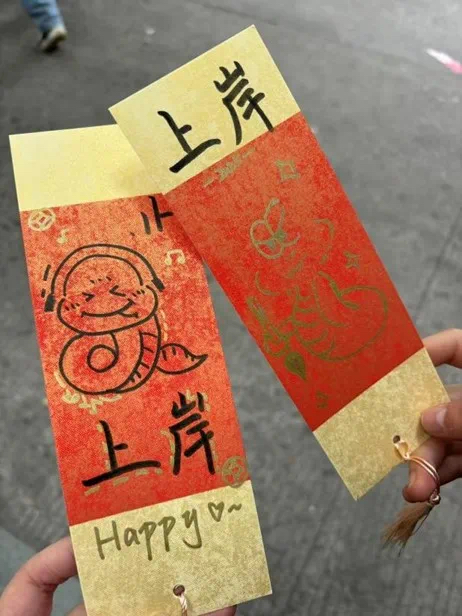 上岸
Happy♡~
上岸